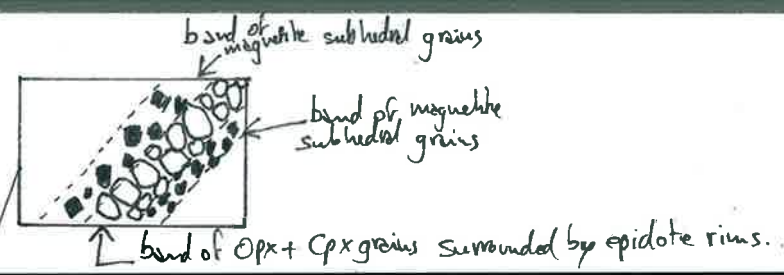 band of
magnetite subhedral grains
band of magnetite
subhedral grains
band of Opx + Cpx grains surrounded by epidote rims.